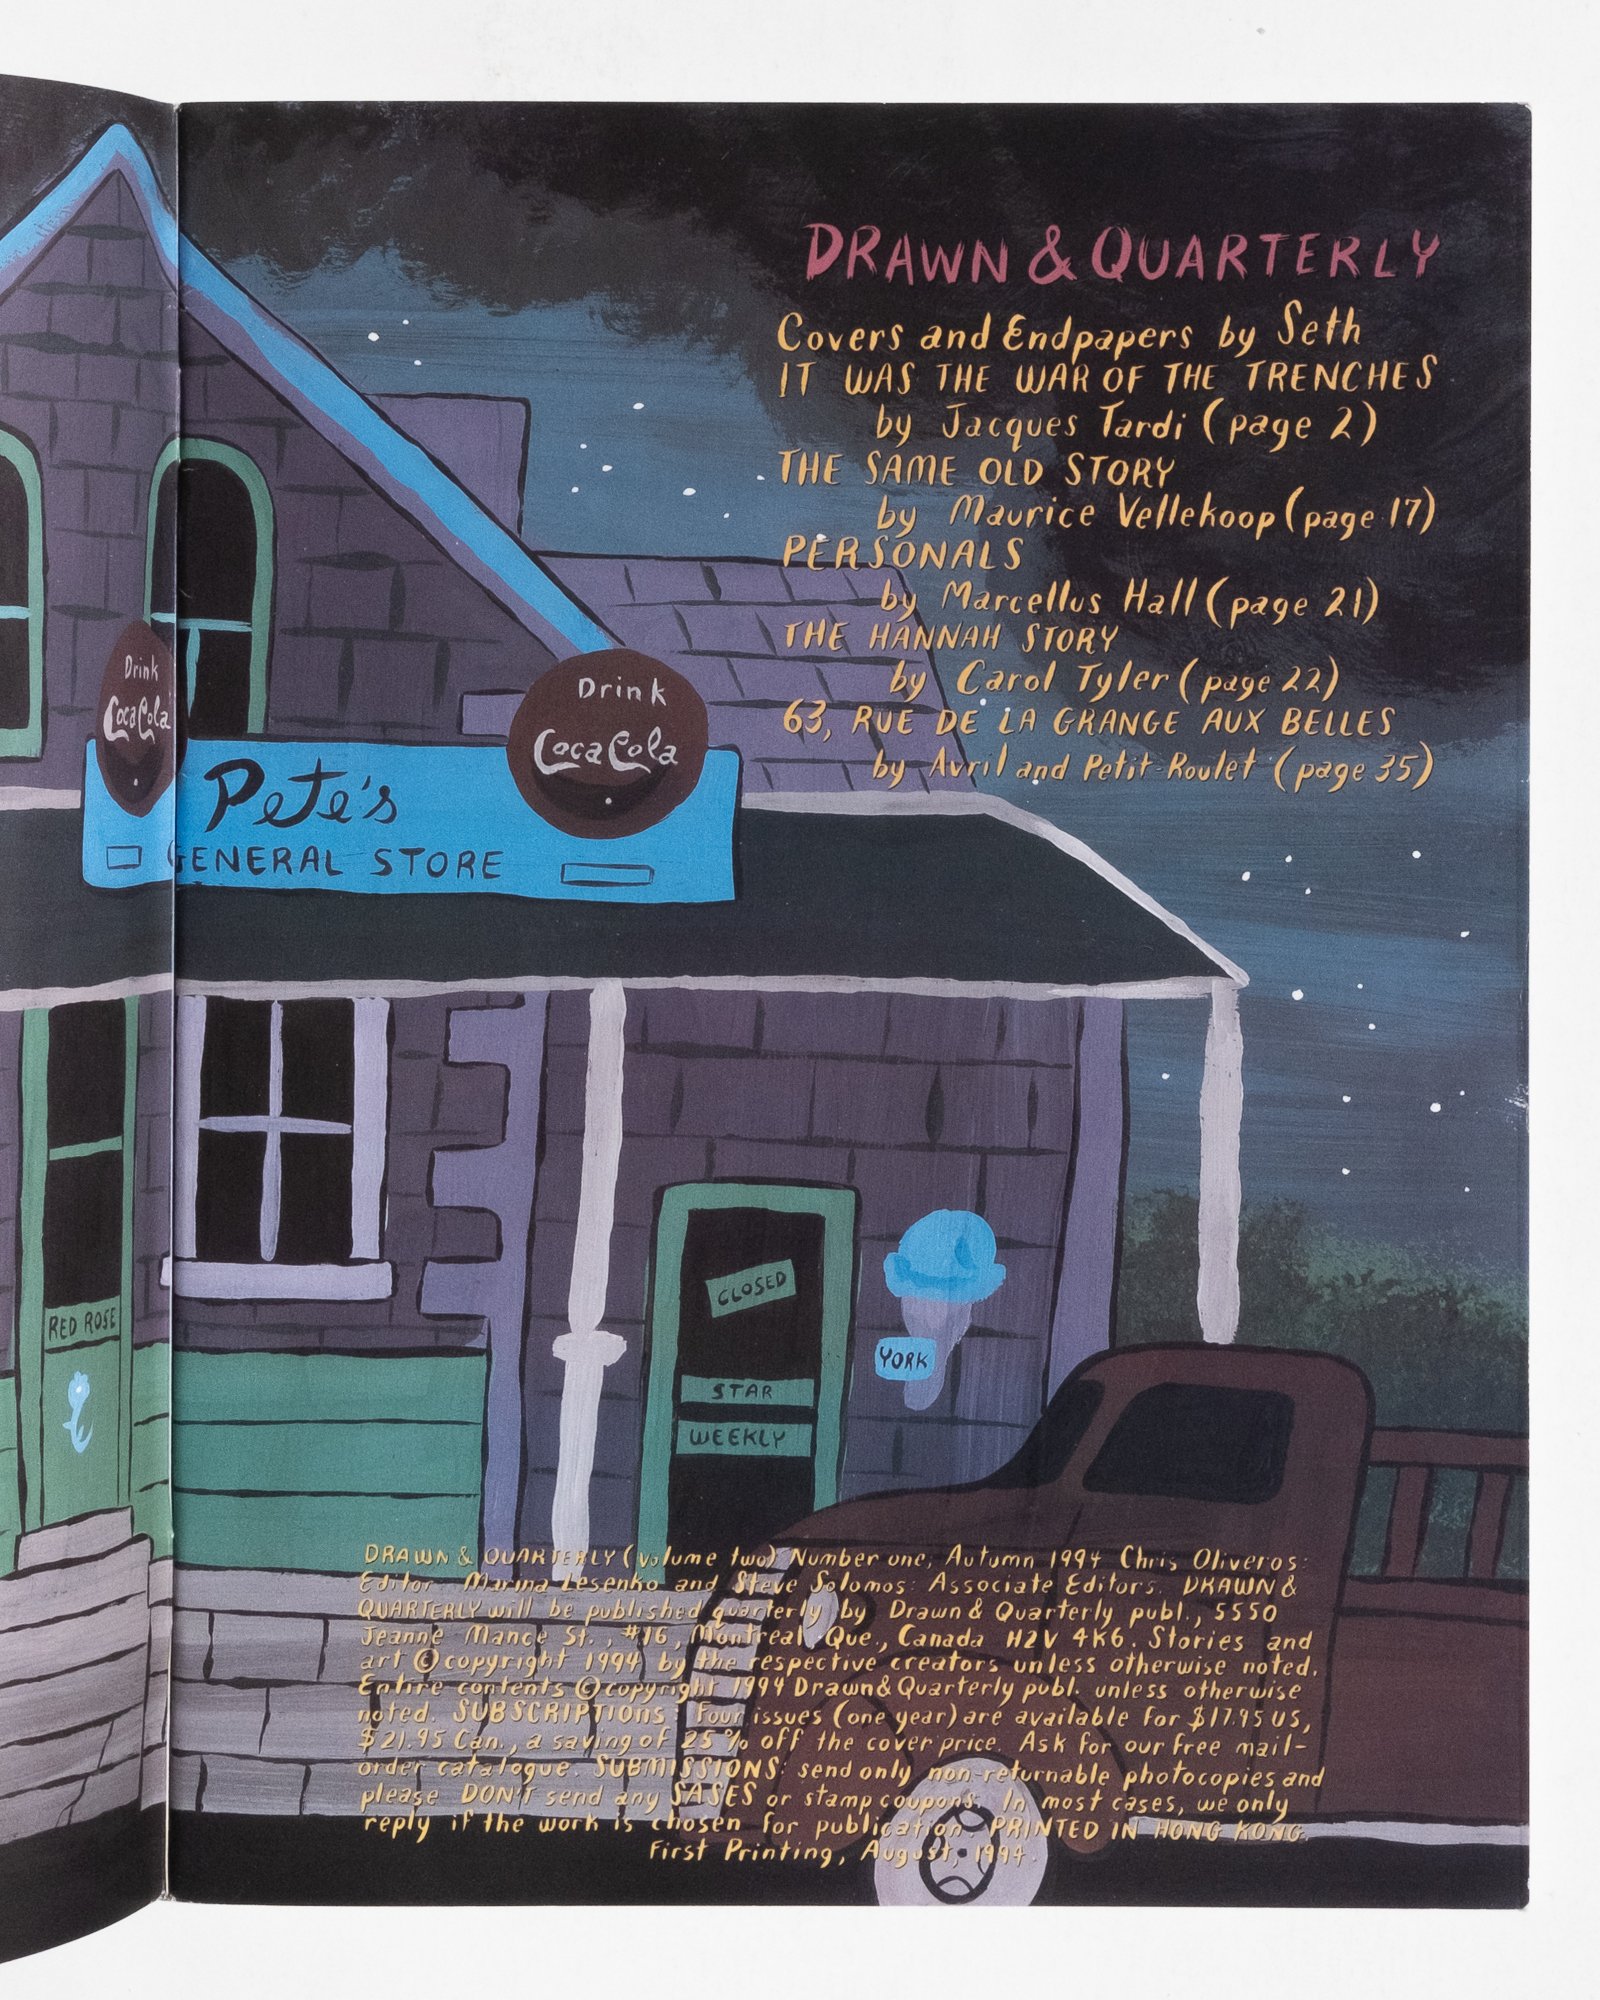 DRAWN & QUARTERLY
Covers and Endpapers by Seth
IT WAS THE WAR OF THE TRENCHES
by Jacques Tardi (page 2)
THE SAME OLD STORY
by Maurice Vellekoop (page 17)
PERSONALS
by Marcellus Hall (page 21)
THE HANNAH STORY
by Carol Tyler (page 22)
63, RUE DE LA GRANGE AUX BELLES
by Avril and Petit-Roulet (page 35)
Drink
Coca Cola
Drink
Coca Cola
Pete's
GENERAL STORE
RED ROSE
CLOSED
YORK
STAR
WEEKLY
DRAWN & QUARTERLY (volume two) Number one, Autumn 1994 Chris Oliveros:
Editor. Marina Lesenko and Steve Solomos: Associate Editors. DRAWN &
QUARTERLY will be published quarterly by Drawn & Quarterly publ., 5550
Jeanne Mance St., #16, Montreal Que., Canada H2V 4K6. Stories and
art © copyright 1994 by the respective creators unless otherwise noted.
Entire contents © copyright 1994 Drawn & Quarterly publ. unless otherwise
noted. SUBSCRIPTIONS: Four issues (one year) are available for $17.95 US,
$21.95 Can., a saving of 25% off the cover price. Ask for our free mail-
order catalogue. SUBMISSIONS: send only non-returnable photocopies and
please DON'T send any SASES or stamp coupons. In most cases, we only
reply if the work is chosen for publication. PRINTED IN HONG KONG.
First Printing, August, 1994.